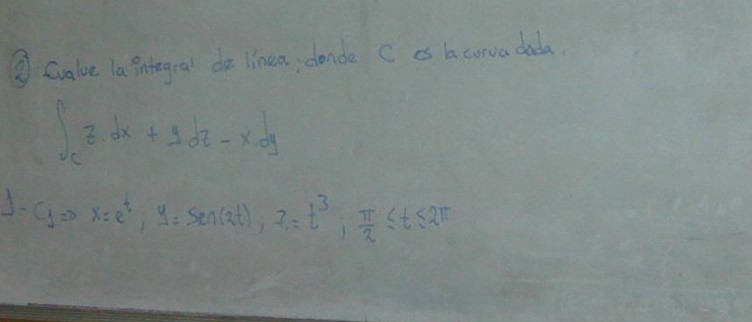 ② Evalue la integral de línea; donde C es la curva dada.
∫_C z.dx + y dz - x.dy
1- C₁ => x=e^t, y=Sen(2t), z=t³; π/2 ≤ t ≤ 2π